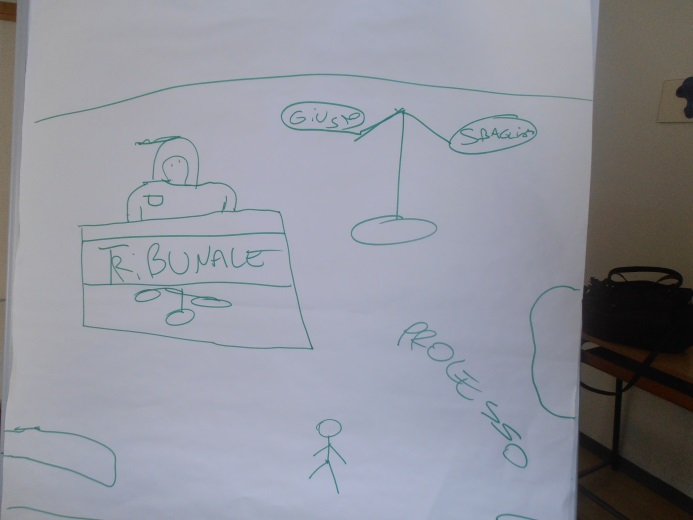 GiUSTO
SBAGLiATO
TRiBUNALE
PROCESSO